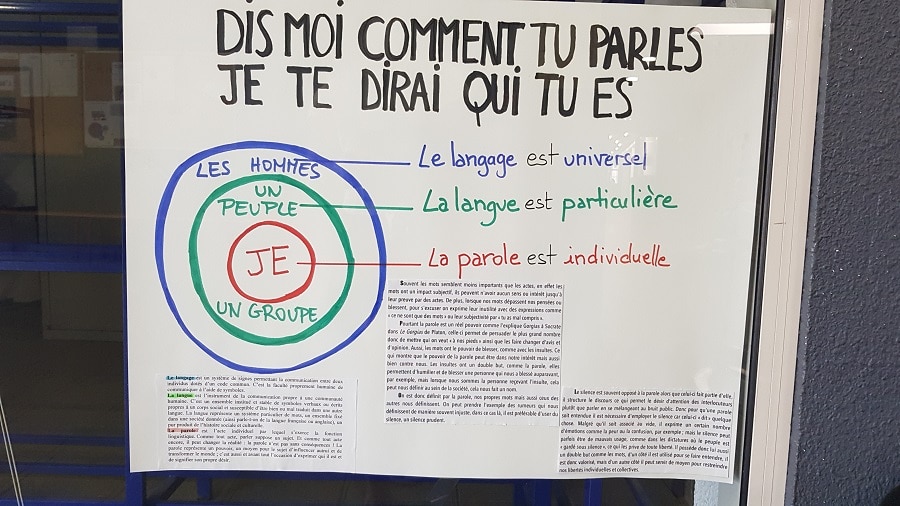 DIS MOI COMMENT TU PARLES
JE TE DIRAI QUI TU ES
LES HOMMES
Le langage est universel
UN
PEUPLE
La langue est particulière
JE
La parole est individuelle
UN GROUPE
Souvent les mots semblent moins importants que les actes, en effet les
mots ont un impact subjectif, ils peuvent n'avoir aucun sens ou intérêt jusqu'à
leur preuve par des actes. De plus, lorsque nos mots dépassent nos pensées ou
blessent, pour s'excuser on exprime leur inutilité avec des expressions comme
« ce ne sont que des mots » ou leur subjectivité par « tu as mal compris ».
Pourtant la parole est un réel pouvoir comme l'explique Gorgias à Socrate
dans Le Gorgias de Platon, celle-ci permet de persuader le plus grand nombre
donc de mettre qui on veut « à nos pieds » ainsi que les faire changer d'avis et
d'opinion. Aussi, les mots ont le pouvoir de blesser, comme avec les insultes. Ce
qui montre que le pouvoir de la parole peut être dans notre intérêt mais aussi
bien contre nous. Les insultes ont un double but, comme la parole, elles
permettent d'humilier et de blesser une personne qui nous a blessé auparavant,
par exemple, mais lorsque nous sommes la personne reçevant l'insulte, cela
peut nous définir au sein de la société, cela nous fait un nom.
On est donc définit par la parole, nos propres mots mais aussi ceux des
autres nous définissent. On peut prendre l'exemple des rumeurs qui nous
définissent de manière souvent injuste, dans ce cas là, il est préférable d'user du
silence, un silence prudent.
Le langage est un système de signes permettant la communication entre deux
individus dotés d'un code commun. C'est la faculté proprement humaine de
communiquer à l'aide de symboles.
La langue est l'instrument de la communication propre à une communauté
humaine. C'est un ensemble institué et stable de symboles verbaux ou écrits
propres à un corps social et susceptible d'être bien ou mal traduit dans une autre
langue. La langue représente un système particulier de mots, un ensemble fixé
dans une société donnée (aussi parle-t-on de la langue française ou anglaise), un
pur produit de l'histoire sociale et culturelle.
La parole est l'acte individuel par lequel s'exerce la fonction
linguistique. Comme tout acte, parler suppose un sujet. Et comme tout acte
encore, il peut changer la réalité : la parole n'est pas sans conséquences ! La
parole représente un pouvoir, un moyen pour le sujet d'influencer autrui et de
transformer le monde ; c'est aussi et avant tout l'occasion d'exprimer qui il est et
de signifier son propre désir.
Le silence est souvent opposé à la parole alors que celui-ci fait partie d'elle,
il structure le discours ce qui permet d'attention des interlocuteurs
plutôt que parler en se mélangeant au bruit public. Donc pour qu'une parole
soit entendue il est nécessaire d'employer le silence car celui-ci « dit » quelque
chose. Malgré qu'il soit associé au vide, il exprime un certain nombre
d'émotions comme la peur ou la confusion, par exemple ; mais le silence peut
parfois être de mauvais usage, comme dans les dictatures où le peuple est
« gardé sous silence », ce qui les prive de toute liberté. Il possède donc lui aussi
un double but comme les mots, d'un côté il est utilisé pour se faire entendre, il
est donc valorisé, mais d'un autre côté il peut servir de moyen pour restreindre
nos libertés individuelles et collectives.